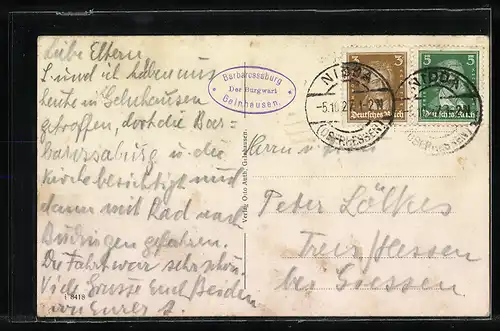 Liebe Eltern
L. und ich haben uns
heute in Gelnhausen
getroffen, dort die Bar-
barossaburg u. die
Kirche besichtigt und
dann mit Rad nach
Büdingen gefahren.
Die Fahrt war sehr schön.
Viele Grüsse Euch Beiden
von Eurer
t 8418
Barbarossaburg
Der Burgwart
Gelnhausen.
Verlag Otto Auth, Gelnhausen.
3 3
Deutsches Reich
5 5
Deutsches Reich
NIDDA
-5.10.27.1-2.N
(OBERHESSEN)
NIDDA
(OBERHESSEN)
Herrn u.
Peter Lölkes
Treis/Hessen
bei Giessen